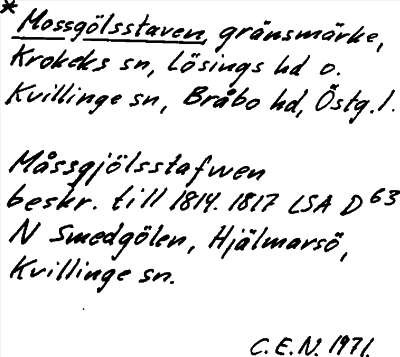 * Mossgölsstaven, gränsmärke,
Krokeks sn, Lösings hd o.
Kvillinge sn, Bråbo hd, Östg.l.
Måssgjölsstafwen
beskr. till 1814. 1817 LSA D 63
N Smedgölen, Hjälmarsö,
Kvillinge sn.
C.E.N. 1971.